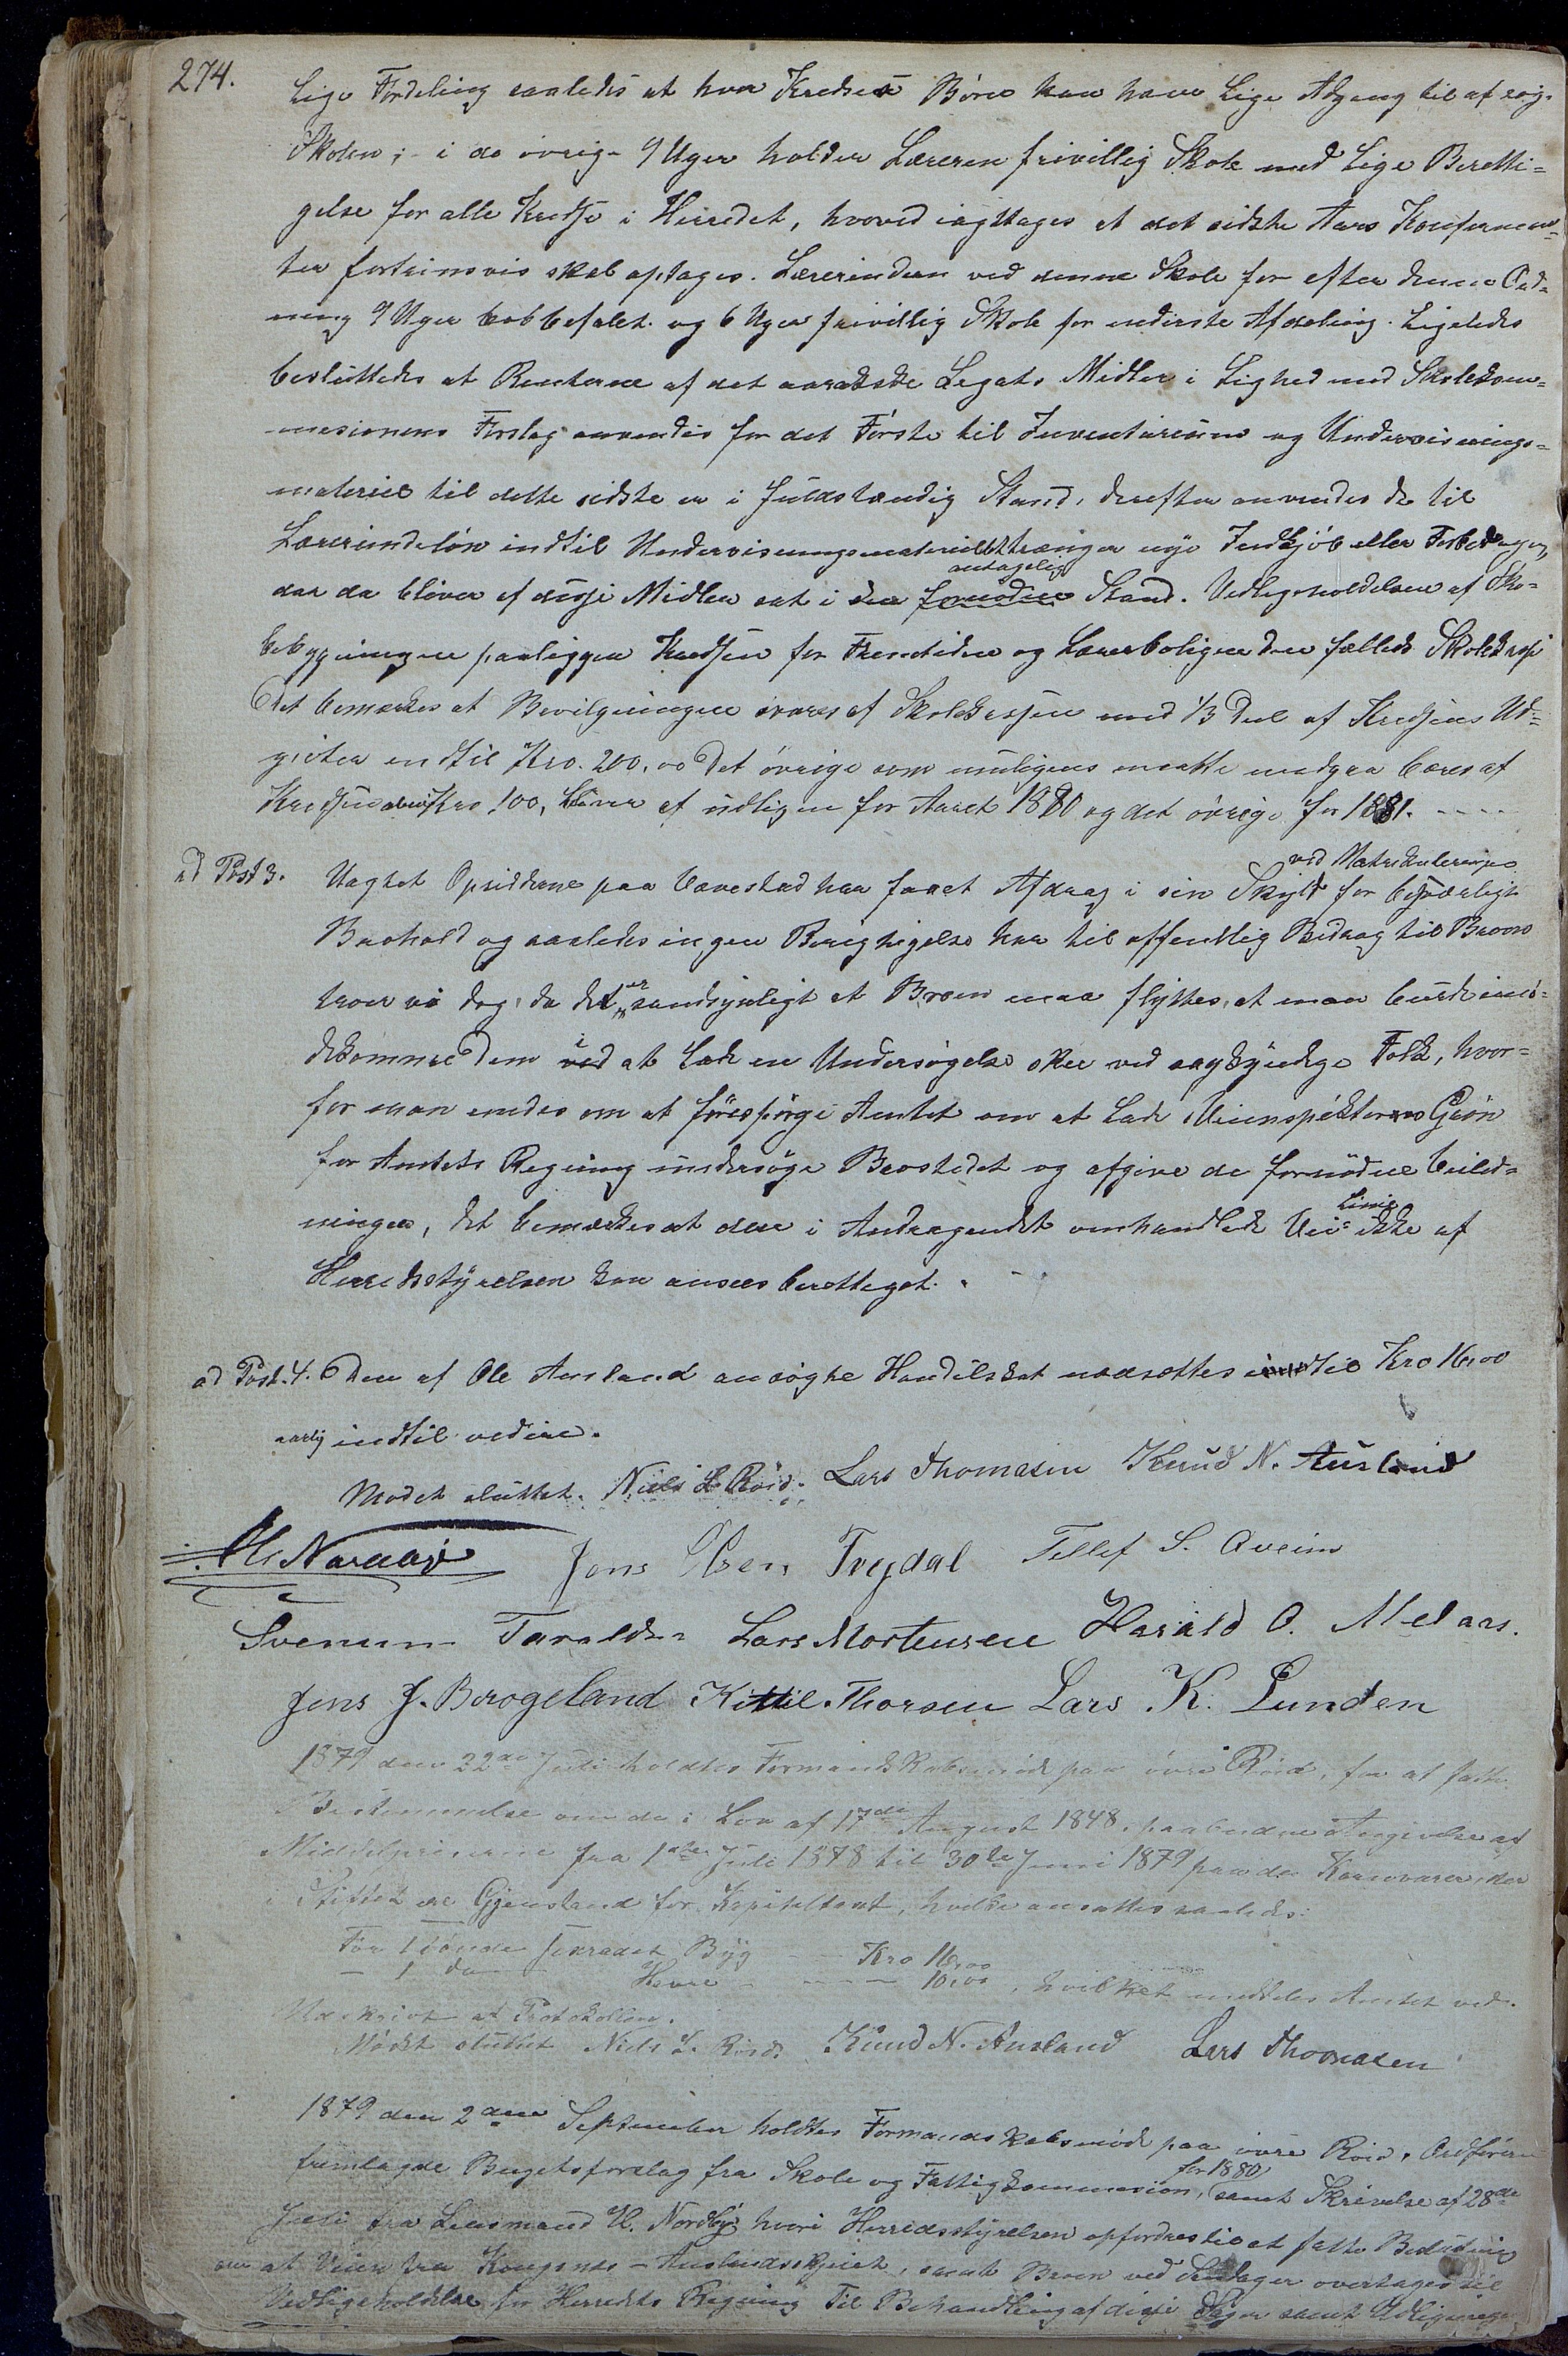 274.
Lige Fordeling saaledes at hver Kredses Børn kan have Lige Adgang til
Skolen; i de øvrige 9 Uger holder Læreren frivillig Skole med Lige Beretti=
gelse for alle Kredse i Herredet, hvorved iagttages at det sidste Aars Konfirman=
ter fortrinsvis skal optages. Lærerinden ved denne Skole for efter denne Ord=
ning 9 Uger lovbefalet og 6 Uger frivillig Skole for nederste Afdeling. Ligeledes
besluttedes at Renterne af det Legats Midler i Lighed med Skolekom=
mesionens Forslag anvendes for det Første til Inventarium og Undervisnings=
materiel til dette sidste er i fuldstændig Stand, derefter anvendes de til
Lærerindeløn indtil Undervisningsmateriellet trænger nye Indkjøb eller
antagelig
der da bliver af disse Midler sat i den fornødne Stand. Vedligeholdelsen af Sko=
lebygningen paaligger Kredsen for Fremtiden og Lærerboligen den fælleds Skolekasse
Det bemærkes at Bevilgningen svares af Skolekassen med 1/3 Deel af Kredsens Ud=
gifter indtil Kro. 200,00 Det øvrige som muligens maatte medgaa bæres af
Kredsen Kro 100, bliver at udligne for Aaret 1880 og det øvrige for 1881.
ved Matrikuleringen
ad Post 3. Uagtet Opsidderne paa Vævestad har faaet Afdrag i sin Skyld for besværligt
Brohold og saaledes ingen Berettigelse har til offentlig Bidrag til Broen
troer vi dog, da det er sandsynligt at Broen maa flyttes, at man burde imø=
dekomme Dem i ved at lade en Undersøgelse skee ved sagkyndige Folk, hvor=
for man enedes om at forespørge Amtet om at lade Veiinspektør Grøn
for Amtets Regning undersøge Brostedet og afgive de fornødne Veiled=
Linie
ninger, det bemærkes at den i Andragendet omhandlede Vei= ikke af
Herredsstyrelsen kan ansees berettiget.
ad Post. 4. Den af Ole Ausland ansøgte Handelsskat nedsættes til Kro 16,00
aarlig indtil videre.
Mødet sluttet. Niels L. Røid. Lars Thomasen Knud N. Ausland
Jens Olsen Trydal Tellef S. Aveim
Svenum Taraldsen Lars Mortensen Harald O. Melaas.
Jens J. Brogeland Kittil Thorsen Lars K. Lunden
1879 den 22de Juli holdtes Formandskabsmøde paa øvre Røid, for at fatte
Bestemmelse om de i Lov af 17de August 1848 paabudne Angivelse af
Middelpriserne fra 1ste Juli 1878 til 30te Juni 1879 paa de Kornvarer, der
i Stiftet ere Gjenstand for Kapiteltaxt, hvilke ansattes saaledes:
For 1 Tønde Byg Kro 16,00
- 1 do Havre 10,00, hvilket meddeles Amtet ved
Udskrivt af Protokollen.
Mødet sluttet Niels L. Røid. Knud N. Ausland Lars Thomasen
1879 den 2den September holdtes Formandskabsmøde paa øvre Røid. Ordføreren
for 1880
fremlagde Bugetsforslag fra Skole og Fattigkommesion, samt Skrivelse af 28de
Juli fra Lensmand Nordby hvori Herredsstyrelsen opfordres til at fatte Beslutning
om at Veien fra - Auslandsskjeet, samt Broen ved overtages til
Vedligeholdelse for Herredets Regning Til Behandling af disse Sager samt